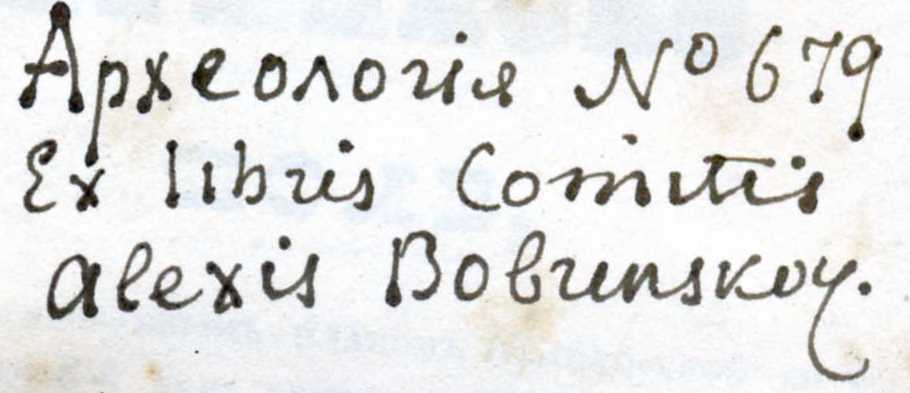 Археологія № 679
Ex libris Comitis
Alexis Bobrinskoy.